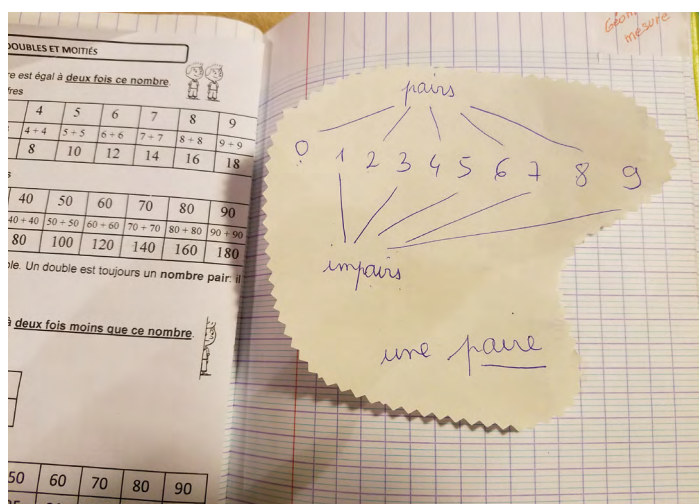 DOUBLES ET MOITIÉS
re est égal à deux fois ce nombre.
fres
4 5 6 7 8 9
4+4 5+5 6+6 7+7 8+8 9+9
8 10 12 14 16 18
s
40 50 60 70 80 90
40+40 50+50 60+60 70+70 80+80 90+90
80 100 120 140 160 180
ble. Un double est toujours un nombre pair: il
à deux fois moins que ce nombre.
50 60 70 80 90
Géom
mesure
pairs
0 1 2 3 4 5 6 7 8 9
impairs
une paire